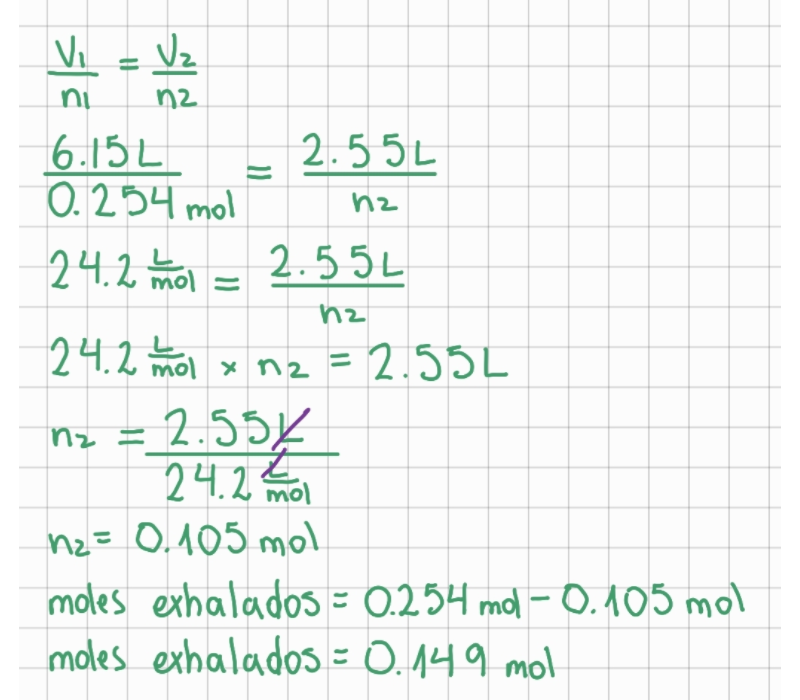 V1/n1 = V2/n2
6.15L/0.254 mol = 2.55L/n2
24.2 L/mol = 2.55L/n2
24.2 L/mol × n2 = 2.55L
n2 = 2.55L/24.2 L/mol
n2 = 0.105 mol
moles exhalados = 0.254 mol - 0.105 mol
moles exhalados = 0.149 mol